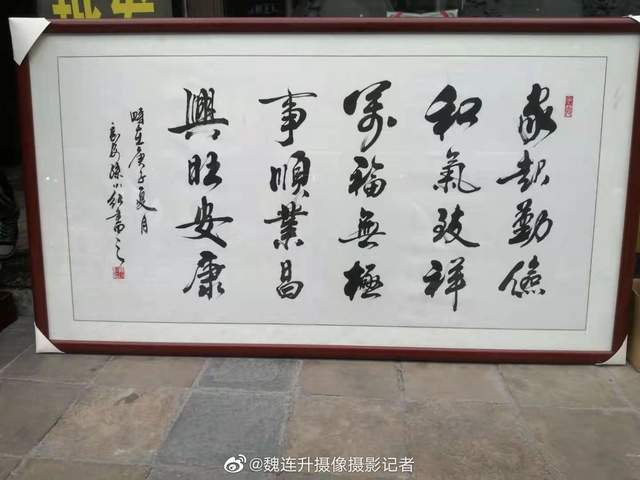 家起勤儉
和氣致祥
萬福無極
事順業昌
興旺安康
時在庚子夏月
書之
@魏连升摄像摄影记者